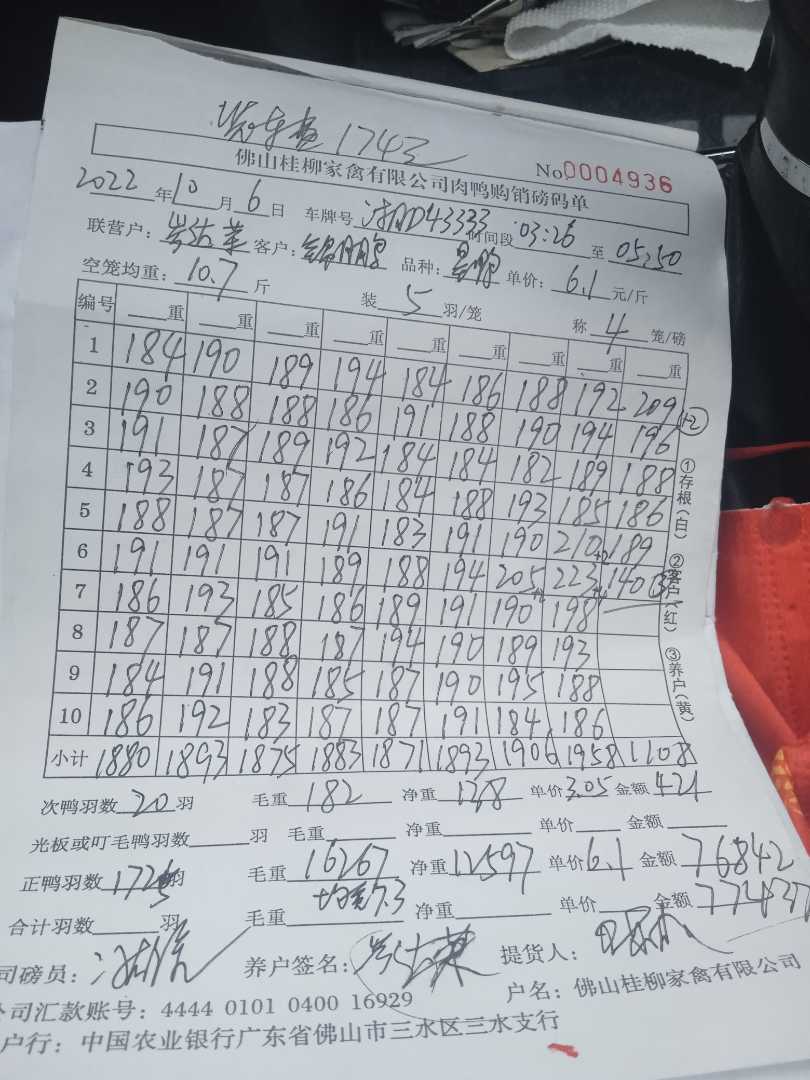 1743
佛山桂柳家禽有限公司肉鸭购销磅码单
No 0004936
2022年10月6日 车牌号 D43333 时间段 03:26 至 05:50
联营户: 客户: 品种: 单价: 6.1 元/斤
空笼均重: 10.7 斤 装 5 羽/笼 称 4 笼/磅
编号 重 重 重 重 重 重 重 重 重
1 184 190 189 194 184 186 188 192 209
2 190 188 188 186 191 188 190 194 196 +2
3 191 187 189 192 184 184 182 189 188
4 193 187 187 186 184 188 193 185 186
5 188 187 187 191 183 191 190 210 +2 189
6 191 191 191 189 188 194 205 223 140
7 186 193 185 186 189 191 190 198
8 187 187 188 187 194 190 189 193
9 184 191 188 185 187 190 195 188
10 186 192 183 187 187 191 184 186
小计 1880 1893 1875 1883 1871 1893 1906 1958 1108
①存根(白)
②客户(红)
③养户(黄)
次鸭羽数 20 羽 毛重 182 净重 138 单价 3.05 金额 421
光板或叮毛鸭羽数 羽 毛重 净重 单价 金额
正鸭羽数 羽 毛重 16267 净重 12597 单价 6.1 金额 76842
均重7.3
合计羽数 羽 毛重 净重 单价 金额
司磅员: 养户签名: 提货人:
公司汇款账号: 4444 0101 0400 16929 户名: 佛山桂柳家禽有限公司
户行: 中国农业银行广东省佛山市三水区三水支行